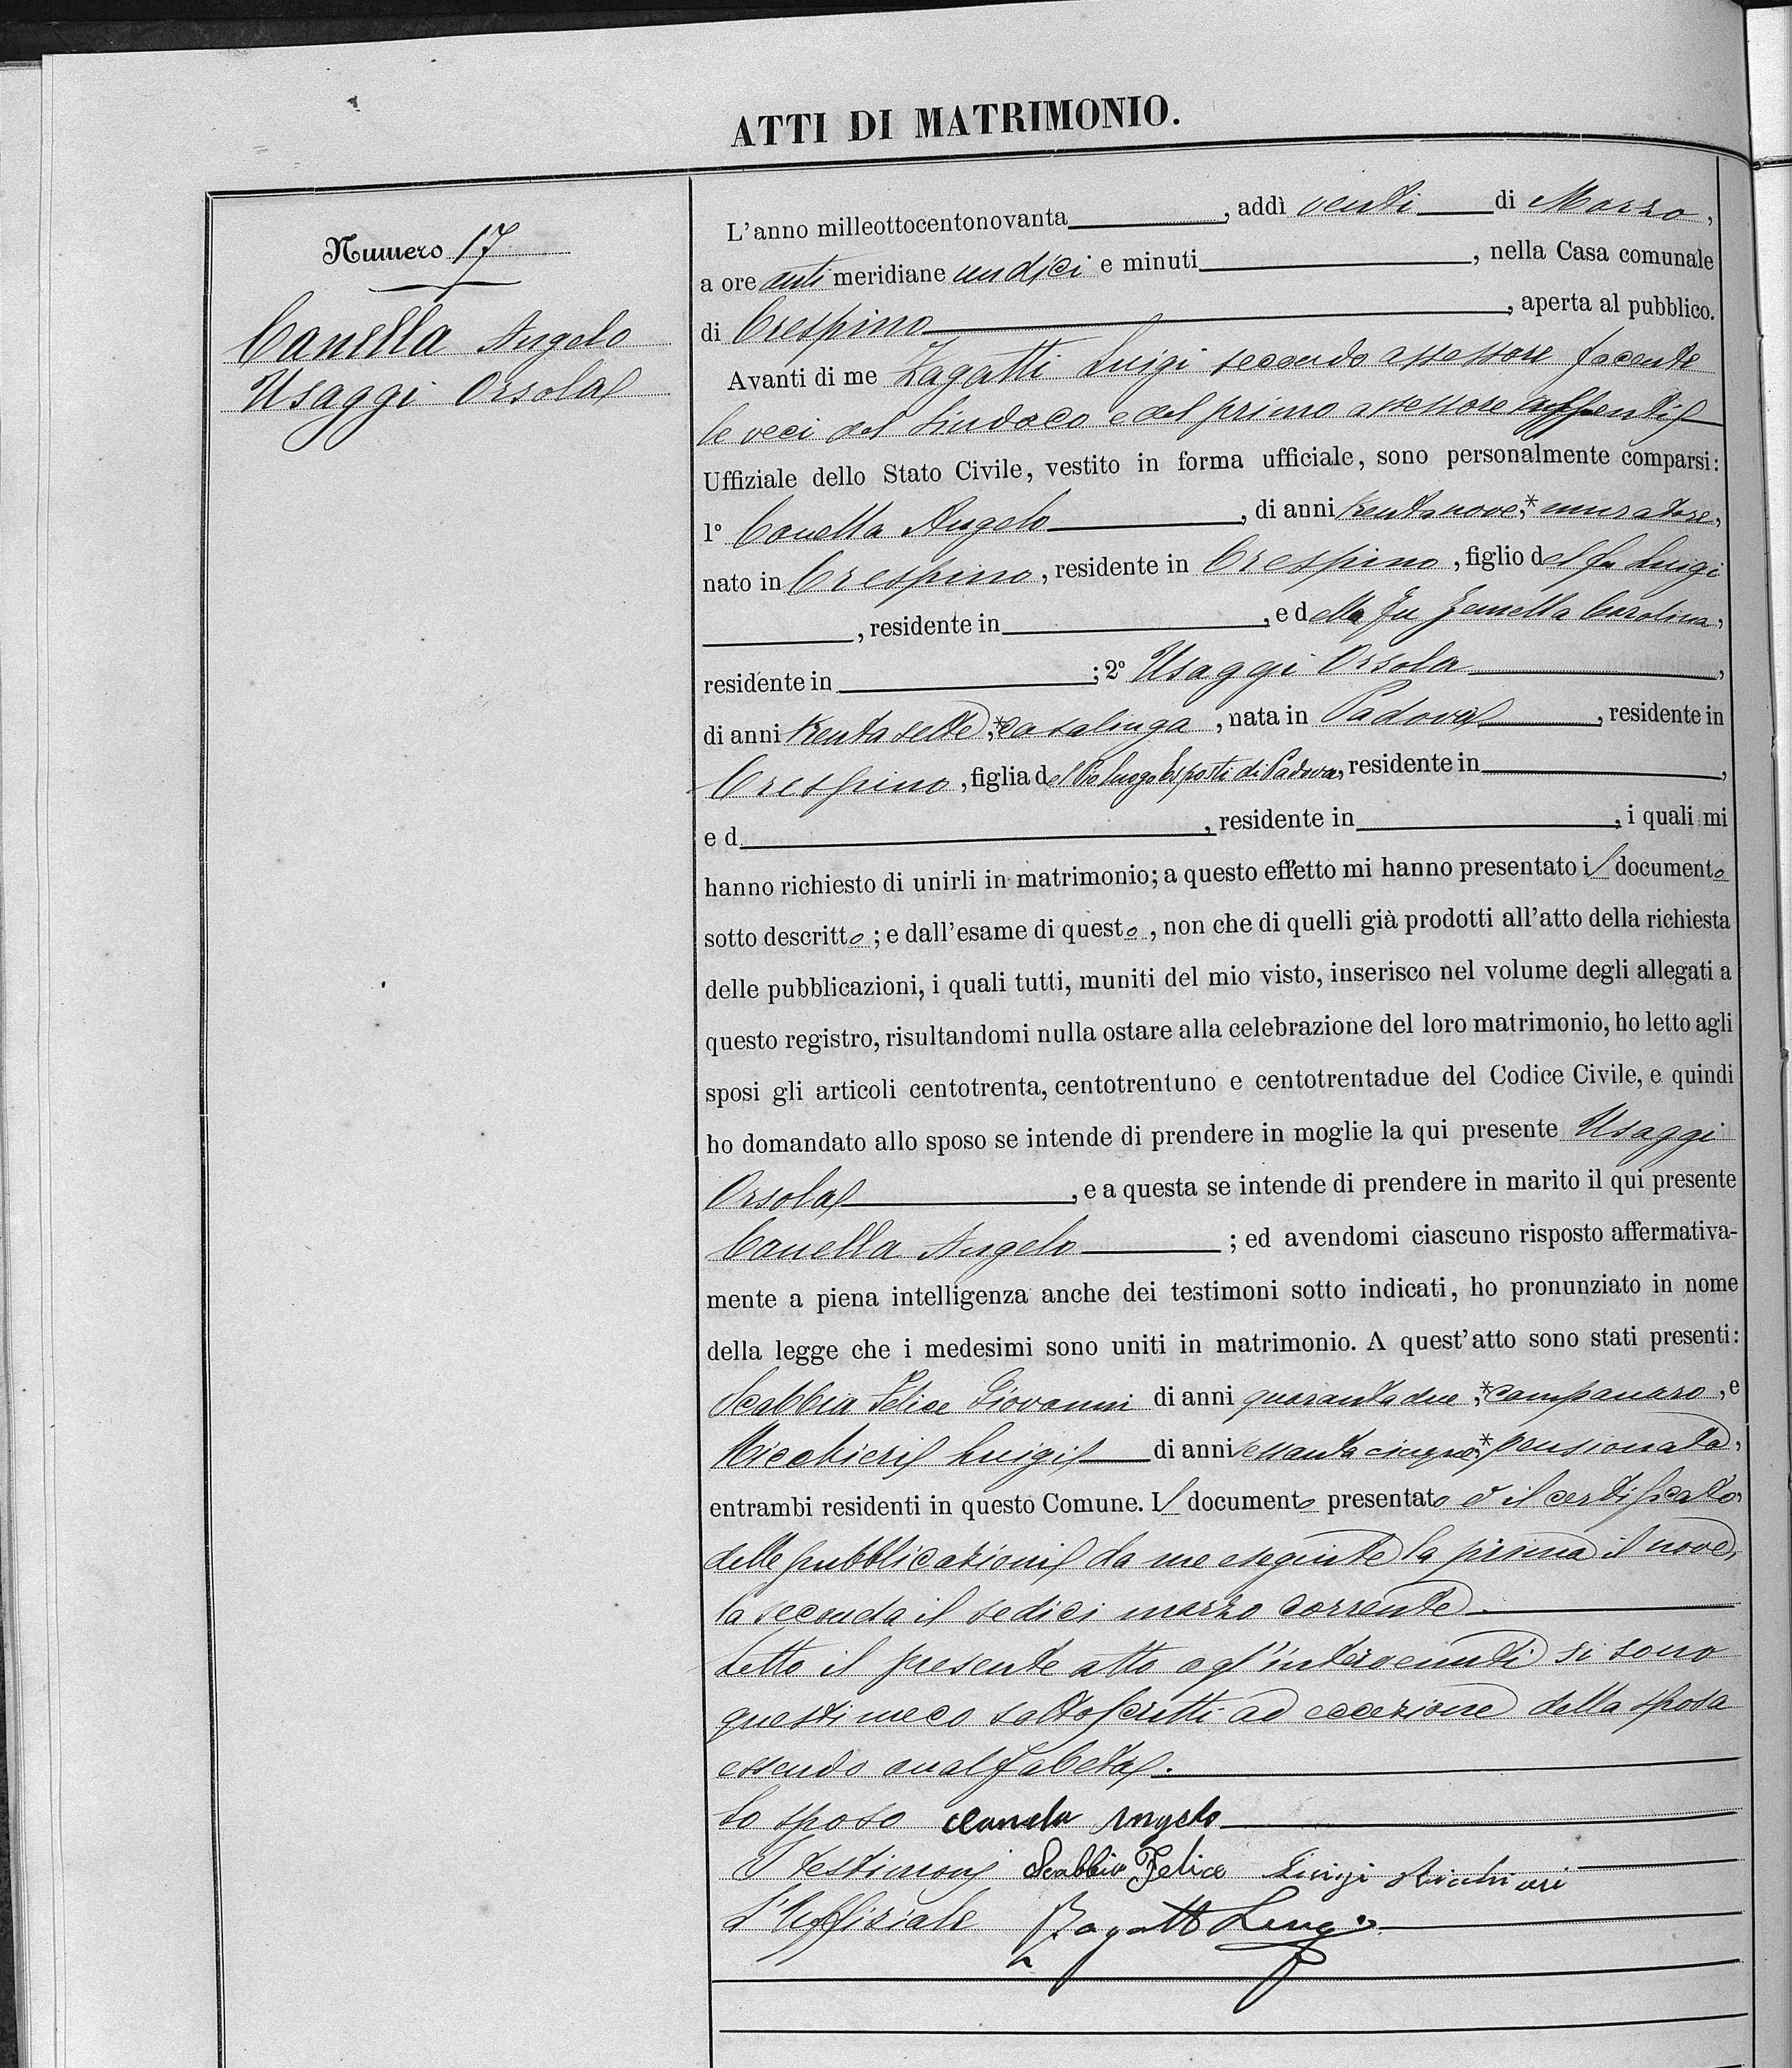 ATTI DI MATRIMONIO.
Numero 17
Canella Angelo
Usaggi Orsola
L'anno milleottocentonovanta, addì venti di Marzo,
a ore anti meridiane undici e minuti, nella Casa comunale
di Crespino, aperta al pubblico.
Avanti di me Zagatti Luigi secondo assessore facente
le veci del Sindaco e del primo assessore assenti
Uffiziale dello Stato Civile, vestito in forma ufficiale, sono personalmente comparsi:
1° Canella Angelo, di anni trentanove,* muratore,
nato in Crespino, residente in Crespino, figlio del fu Luigi
, residente in, e della fu Zemella Carolina,
residente in; 2° Usaggi Orsola,
di anni trentasette,* casalinga, nata in Padova, residente in
Crespino, figlia del Pio luogo Esposti di Padova, residente in,
e d, residente in, i quali mi
hanno richiesto di unirli in matrimonio; a questo effetto mi hanno presentato il documento
sotto descritto; e dall'esame di questo, non che di quelli già prodotti all'atto della richiesta
delle pubblicazioni, i quali tutti, muniti del mio visto, inserisco nel volume degli allegati a
questo registro, risultandomi nulla ostare alla celebrazione del loro matrimonio, ho letto agli
sposi gli articoli centotrenta, centotrentuno e centotrentadue del Codice Civile, e quindi
ho domandato allo sposo se intende di prendere in moglie la qui presente Usaggi
Orsola, e a questa se intende di prendere in marito il qui presente
Canella Angelo; ed avendomi ciascuno risposto affermativa-
mente a piena intelligenza anche dei testimoni sotto indicati, ho pronunziato in nome
della legge che i medesimi sono uniti in matrimonio. A quest'atto sono stati presenti:
Scabbia Felice Giovanni di anni quarantadue,* campanaro, e
Ricchieri Luigi di anni sessantacinque,* pensionato,
entrambi residenti in questo Comune. Il documento presentato è il certificato
delle pubblicazioni da me eseguite la prima il nove,
la seconda il sedici marzo corrente.
Letto il presente atto agl'intervenuti si sono
questi meco sottoscritti ad eccezione della sposa
essendo analfabeta.
Lo sposo Canela Angelo
I testimonj Scabbia Felice Luigi Ricchieri
L'Uffiziale Zagatti Luigi